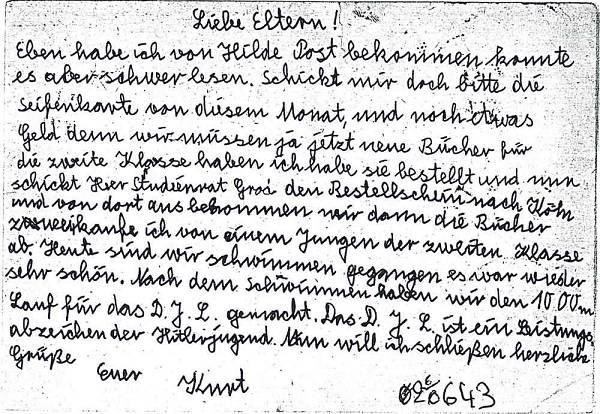 Liebe Eltern!
Eben habe ich von Hilde Post bekommen konnte
es aber schwer lesen. Schickt mir doch bitte die
Seifenkarte von diesem Monat, und noch etwas
Geld denn wir müssen ja jetzt neue Bücher für
die zweite Klasse haben ich habe sie bestellt und nun
schickt Herr Studienrat den Bestellschein nach Köln
und von dort aus bekommen wir dann die Bücher
kaufe ich von einem Jungen der zweiten Klasse
ab. Heute sind wir schwimmen gegangen es war wieder
sehr schön. Nach dem Schwimmen haben wir den 1000m
Lauf für das D. J. L. gemacht. Das D. J. L. ist ein Leistungs
abzeichen der Hitlerjugend. Nun will ich schließen herzlich
Grüße
Euer Kurt 643